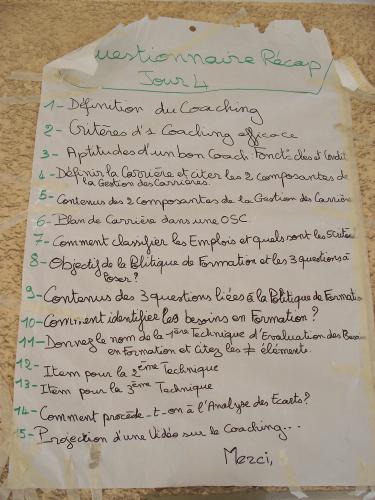 Questionnaire Récap
Jour 4
1- Définition du Coaching
2- Critères d'1 Coaching efficace
3- Aptitudes d'un bon Coach Fonct° clés et Condit
4- Définir la Carrière et citer les 2 composantes de
la Gestion des Carrières.
5- Contenus des 2 Composantes de la Gestion des Carrière
6- Plan de Carrière dans une OSC
7- Comment classifier les Emplois et quels sont les 5 critè
8- Objectif de la Politique de Formation et les 3 questions à
poser?
9- Contenus des 3 questions liées à la Politique de Formati
10- Comment identifier les besoins en Formation?
11- Donnez le nom de la 1ère Technique d'Evaluation des Beso
en formation et citez les ≠ éléments.
12- Item pour la 2ème Technique
13- Item pour la 3ème Technique
14- Comment procède-t-on à l'Analyse des Ecarts?
15- Projection d'une Vidéo sur le Coaching...
Merci,